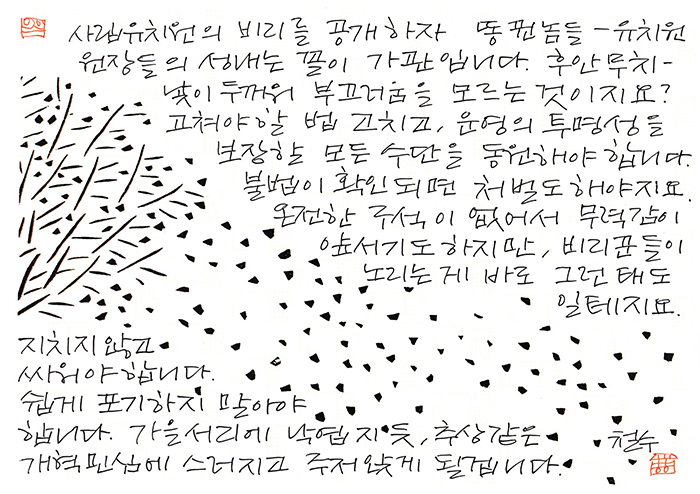 사립유치원의 비리를 공개하자 똥뀐놈들-유치원
원장들의 성내는 꼴이 가관입니다. 후안무치-
낯이 두꺼워 부끄러움을 모르는 것이지요?
고쳐야 할 법 고치고, 운영의 투명성을
보장할 모든 수단을 동원해야 합니다.
불법이 확인되면 처벌도 해야지요.
온전한 주석이 없어서 무력감이
앞서기도 하지만, 비리꾼들이
노리는 게 바로 그런 태도
일테지요.
지치지 않고
싸워야 합니다.
쉽게 포기하지 말아야
합니다. 가을서리에 낙엽지듯, 추상같은
개혁민심에 스러지고 주저앉게 될겝니다.
철수